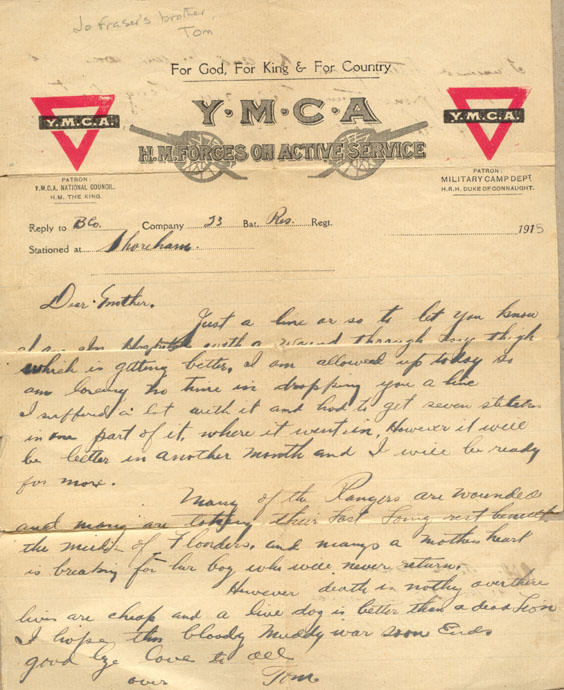 Jo Fraser's brother,
Tom
For God, For King & For Country
Y·M·C·A
H.M. FORCES ON ACTIVE SERVICE
Y.M.C.A.
PATRON:
Y.M.C.A. NATIONAL COUNCIL.
H.M. THE KING.
Y.M.C.A.
PATRON:
MILITARY CAMP DEPT.
H.R.H. DUKE OF CONNAUGHT.
Reply to B Co. Company 23 Bat. Res. Regt. 1915
Stationed at Shoreham.
Dear Mother.
Just a line or so to let you know
I am in Hospital with a wound through my thigh
which is getting better, I am allowed up today so
am losing no time in dropping you a line
I suffered a lot with it and had to get seven stitches
in one part of it, where it went in, However it will
be better in another month and I will be ready
for more.
Many of the Rangers are wounded
and many are taking their last long rest beneath
the mud of Flanders, and many a mothers heart
is breaking for her boy who will never return.
However death is nothing over there
lives are cheap and a live dog is better than a dead Lion
I hope this bloody muddy war soon Ends
good bye love to all
over Tom